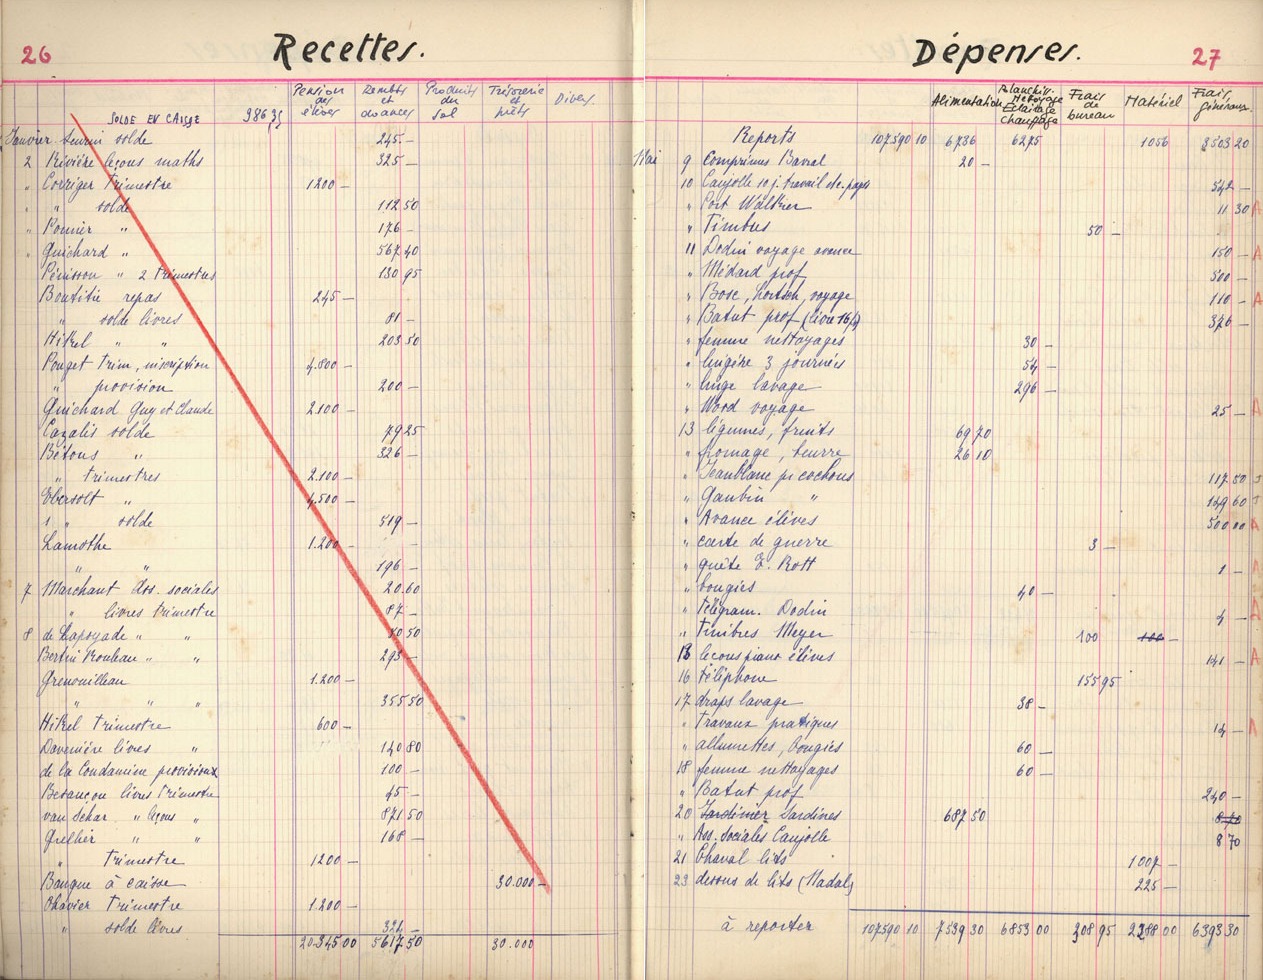 26
Recettes.
Pension des élèves
Rembts et avances
Produits du sol
Trésorerie et prêts
Divers
SOLDE EN CAISSE
Janvier solde 245.—
2 Rivière leçons maths 325 —
" Corriger trimestre 1200 —
" " solde 112 50
" Ponnier " 176 —
" Guichard " 567 40
Pénisson " 2 trimestres 130 95
Boutitié repas 245 —
" solde livres 81 —
Hikel " " 203 50
Pouget trim, inscription 4.800 —
" provision 200 —
Guichard Guy et Claude 2.100 —
Cazalis solde 79 25
Bétous " 326 —
" trimestres 2.100 —
Ebersolt " 4.500 —
" solde 519 —
Lamothe 1.200 —
" " 196 —
7 Marchant Ass. sociales 20.60
" livres trimestre 87 —
8 de Lapoyade " " 80 50
Bertin Rouleau " " 293 —
Grenouilleau 1.200 —
" " " 355 50
Hikel trimestre 600 —
Davenière livres " 140 80
de la Condamine provisions 100 —
Besançon livres trimestre 45 —
van Schar. " leçons " 871 50
Grellier " " 168 —
" trimestre 1200 —
Banque à caisse 30.000 —
Chavier trimestre 1.200 —
" solde livres 324 —
20.345 00 5617 50 30.000
Dépenses.
27
Alimentation
Blanchis. Nettoyage Eclairage Chauffage
Frais de bureau
Matériel
Frais généraux
Reports 107590 10 6736 6275 1056 3503 20
Mai 9 Comprimés Barral 20 —
10 Caujolle 10 j. travail 342 —
" Port Waltzer 11 30 A
" Timbres 50 —
11 Dodin voyage avance 150 — A
" Médard prof 300 —
" Bosc, voyage 110 — A
" Batut prof 376 —
" femme nettoyages 30 —
" lingère 3 journées 54 —
" linge lavage 296 —
" Word voyage 25 — A
13 légumes, fruits 69 70
" fromage, beurre 26 10
" Jeanblanc pr cochons 117 50
" Gaubin " 149 60
" Avance élèves 500 00 A
" carte de guerre 3 —
" quête E. Rott 1 — A
" bougies 40 —
" Télégram. Dodin 4 — A
" Timbres Meyer 100 100 —
13 leçons piano élèves 141 — A
16 téléphone 155 95
17 draps lavage 38 —
" travaux pratiques 14 — A
" allumettes, bougies 60 —
18 femme nettoyages 60 —
" Batut prof 240 —
20 Jardinier Sardines 687 50 8 70
" Ass. Sociales Caujolle 8 70
21 Chaval lits 1007 —
23 dessus de lits (Nadal) 225 —
à reporter 107590 10 7539 30 6853 00 308 95 2288 00 6393 30